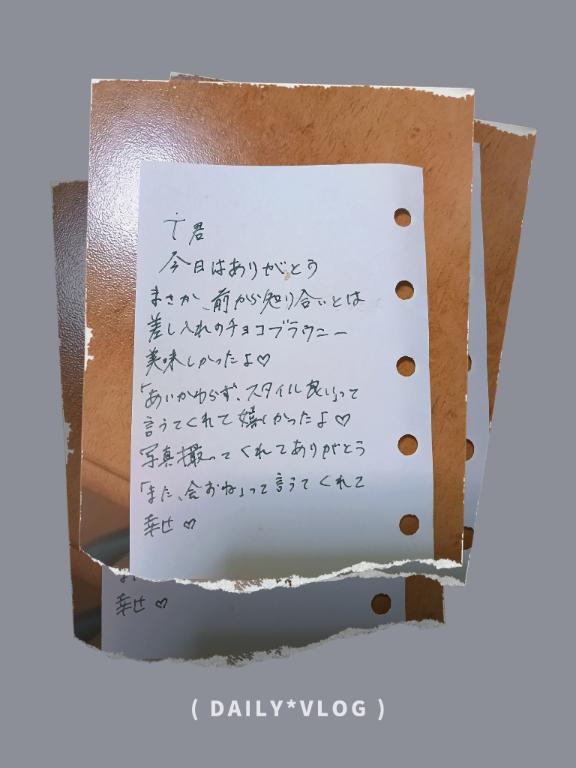 T君
今日はありがとう
まさか、前から知り合いとは
差し入れのチョコブラウニー
美味しかったよ♡
「あいかわらず、スタイル良い」って
言うてくれて嬉しかったよ♡
写真撮ってくれてありがとう
「また、会おね」って言うてくれて
幸せ♡
幸せ♡
( DAILY*VLOG )